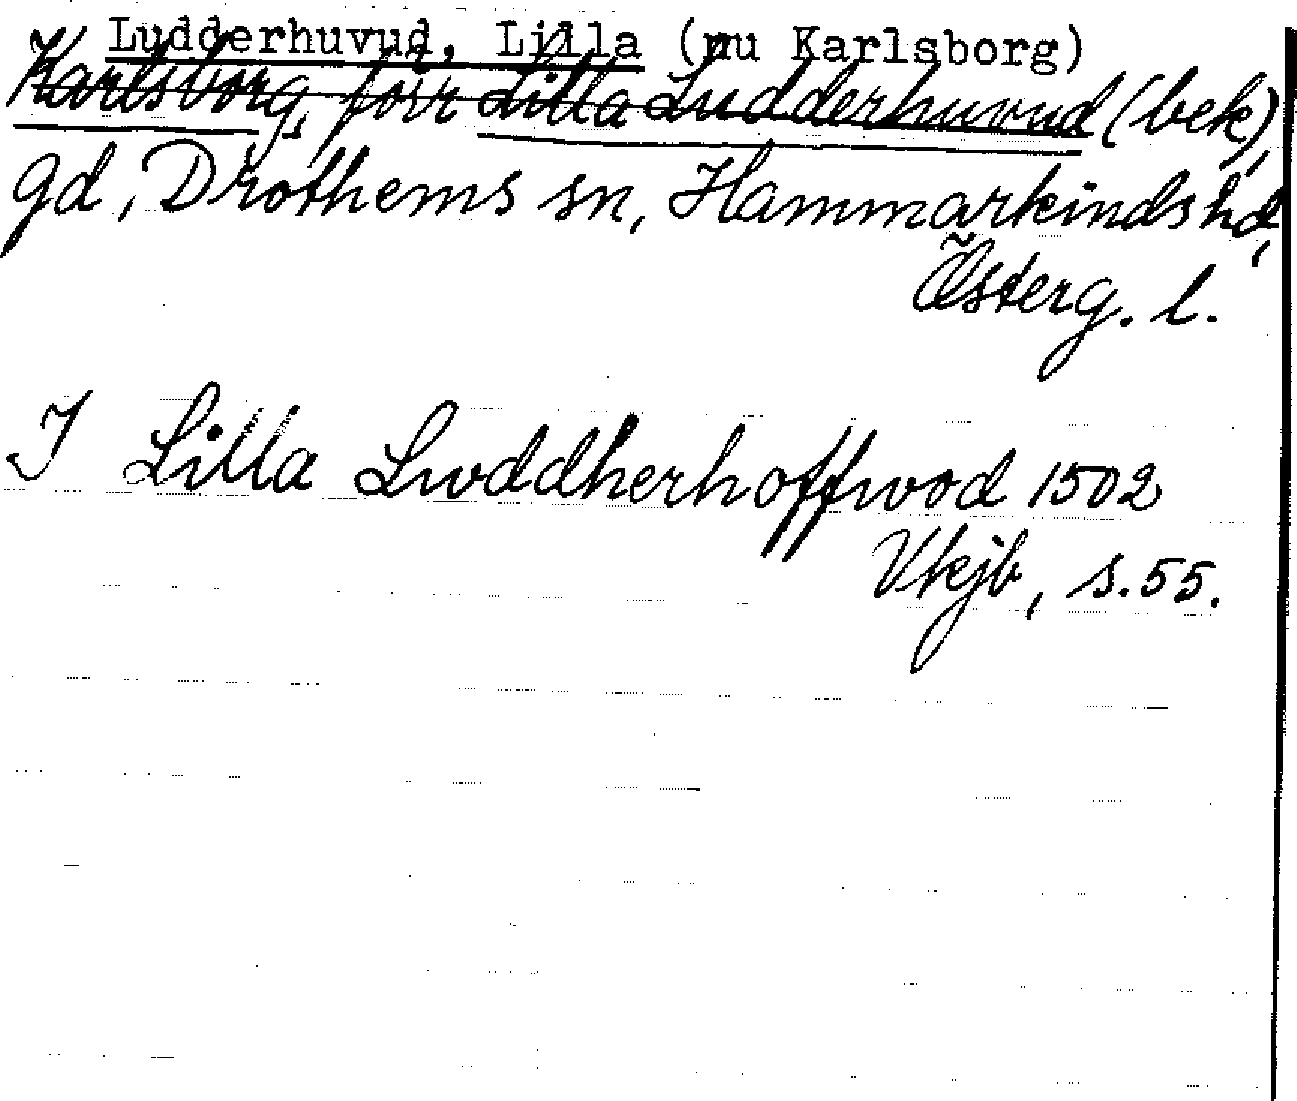 Ludderhuvud, Lilla (nu Karlsborg)
Karlsborg, förr Lilla Ludderhuvud (bek),
gd, Drothems sn, Hammarkinds hd,
Österg. l.
I Lilla Lwddherhoffwod 1502
Vtkjb, s. 55.